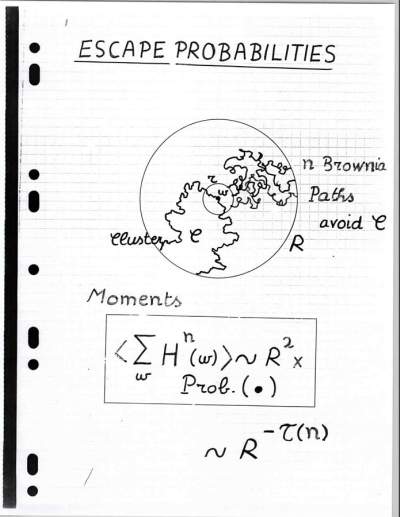 ESCAPE PROBABILITIES
n Brownia
Paths
avoid C
r
ω
Cluster C
R
Moments
⟨ ∑ω Hⁿ(ω) ⟩ ~ R² ×
Prob. (•)
~ R^-τ(n)